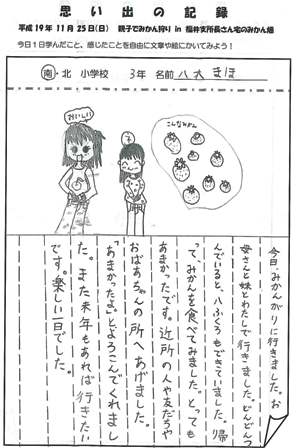 思い出の記録
平成19年11月25日(日) 親子でみかん狩り in 福井支所長さん宅のみかん畑
今日1日学んだこと、感じたことを自由に文章や絵にかいてみよう!
南・北 小学校 3年 名前 八木 きほ
おいしい
こんなみかん
今日、みかんがりに行きました。お
母さんと妹とわたしで行きました。どんどんつ
んでいると、八ふくろもできていました。帰
って、みかんを食べてみました。とっても
あまかったです。近所の人や友だちや
おばあちゃんの所へあげました。
「あまかったよ。」とよろこんでくれまし
た。また来年もあれば行きたい
です。楽しい一日でした。